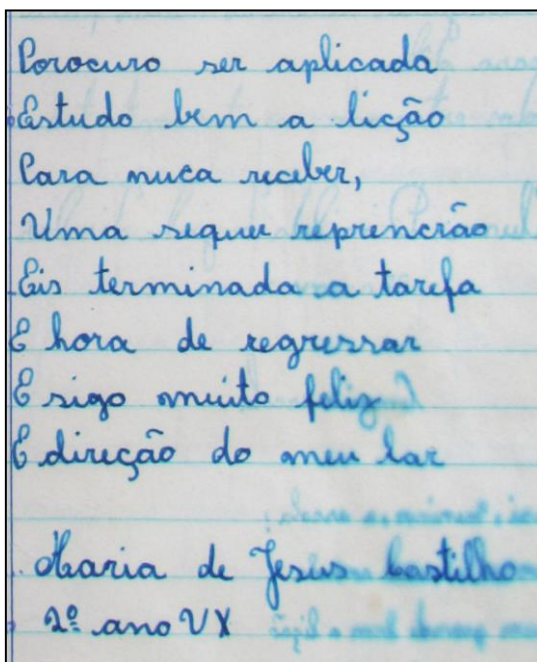 Porocuro ser aplicada
Estudo bem a licção
Para nuca receber,
Uma sequer reprencrão
Eis terminada a tarefa
E hora de regressar
E sigo muito feliz
E direção do meu lar
Maria de Jesus Castilho
2º ano VX